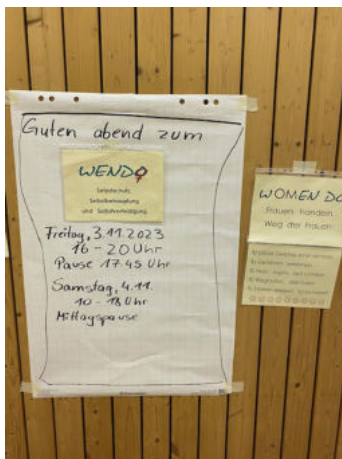 Guten abend zum
WENDO
Selbstschutz
Selbstbehauptung
und Selbstverteidigung
Freitag, 3.11.2023
16 - 20 Uhr
Pause 17.45 Uhr
Samstag, 4.11.
10 - 18 Uhr
Mittagspause
WOMEN DO
Frauen handeln
Weg der Frauen